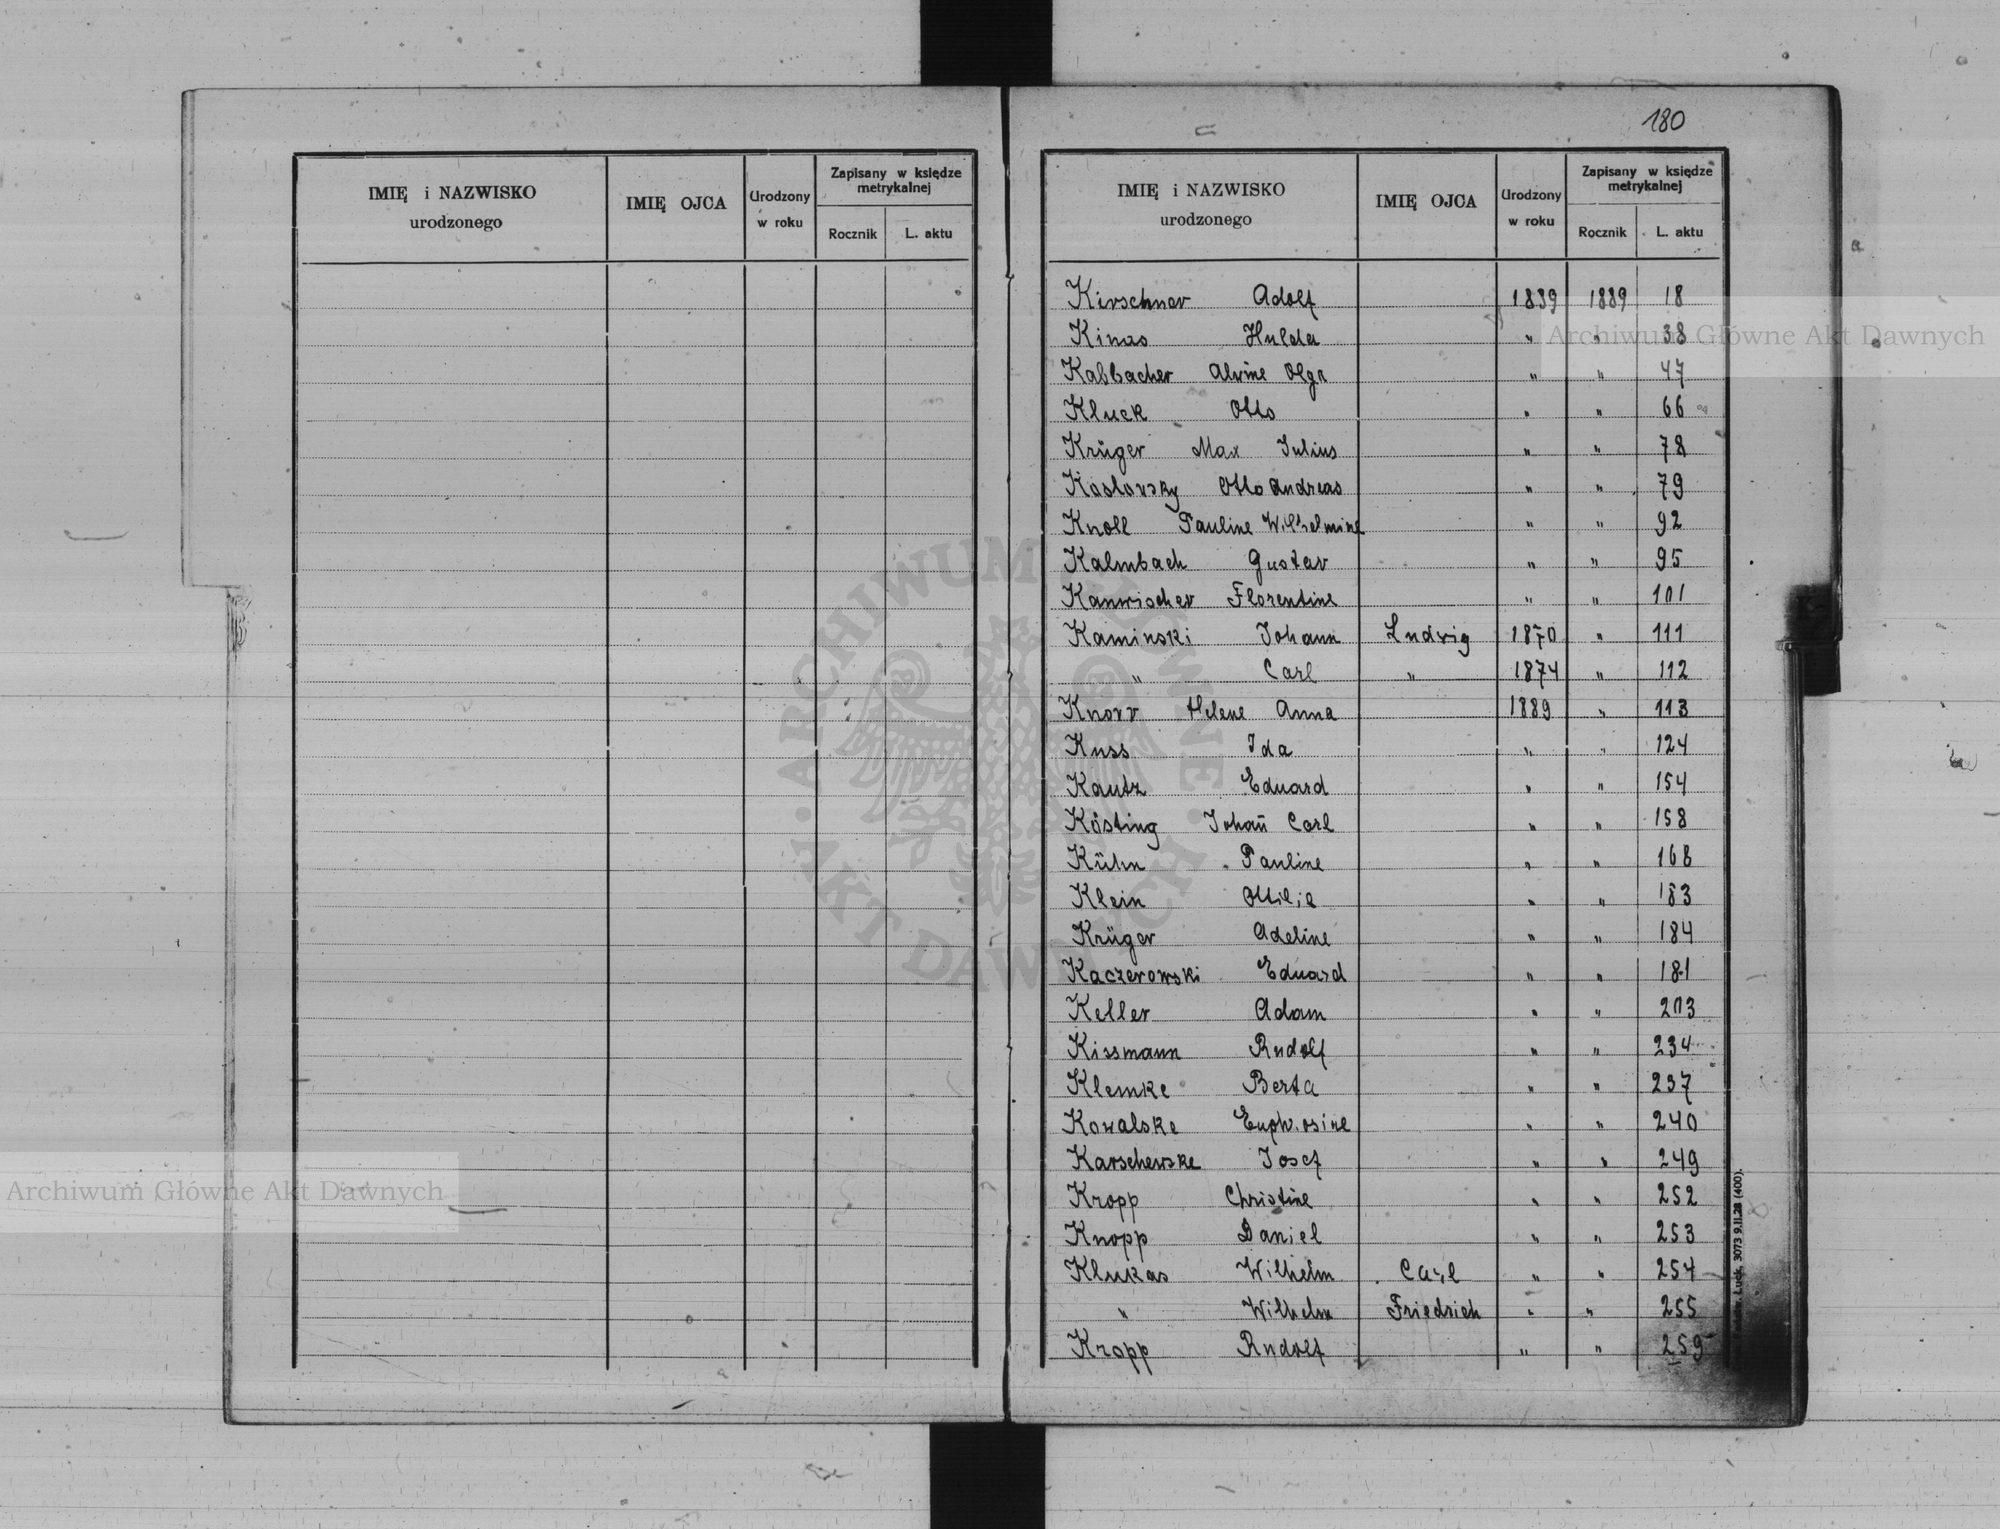 180
IMIĘ i NAZWISKO urodzonego IMIĘ OJCA Urodzony w roku Zapisany w księdze metrykalnej Rocznik L. aktu
IMIĘ i NAZWISKO urodzonego IMIĘ OJCA Urodzony w roku Zapisany w księdze metrykalnej Rocznik L. aktu
Kirschner Adolf 1889 1889 18
Kinas Hulda " " 38
Kalbacher Alvine Olga " " 47
Kluck Otto " " 66
Krüger Max Julius " " 78
Koslovsky Otto Andreas " " 79
Knoll Pauline Wilhelmine " " 92
Kalmbach Gustav " " 95
Kanwischer Florentine " " 101
Kaminski Johann Ludwig 1870 " 111
" Carl " 1874 " 112
Knorr Helene Anna 1889 " 113
Kuss Ida " " 124
Kautz Eduard " " 154
Kösting Johañ Carl " " 158
Kühn Pauline " " 168
Klein Ottilie " " 183
Krüger Adeline " " 184
Kaczerowski Eduard " " 181
Keller Adam " " 203
Kissmann Rudolf " " 234
Klemke Berta " " 237
Kowalske Euphrosine " " 240
Karschewske Josef " " 249
Kropp Christine " " 252
Knopp Daniel " " 253
Klukas Wilhelm Carl " " 254
" Wilhelm Friedrich " " 255
Kropp Rudolf " " 259
Łuck, 3073 9.II.28 (400).
Archiwum Główne Akt Dawnych
Archiwum Główne Akt Dawnych
ARCHIWUM GŁÓWNE · AKT DAWNYCH ·